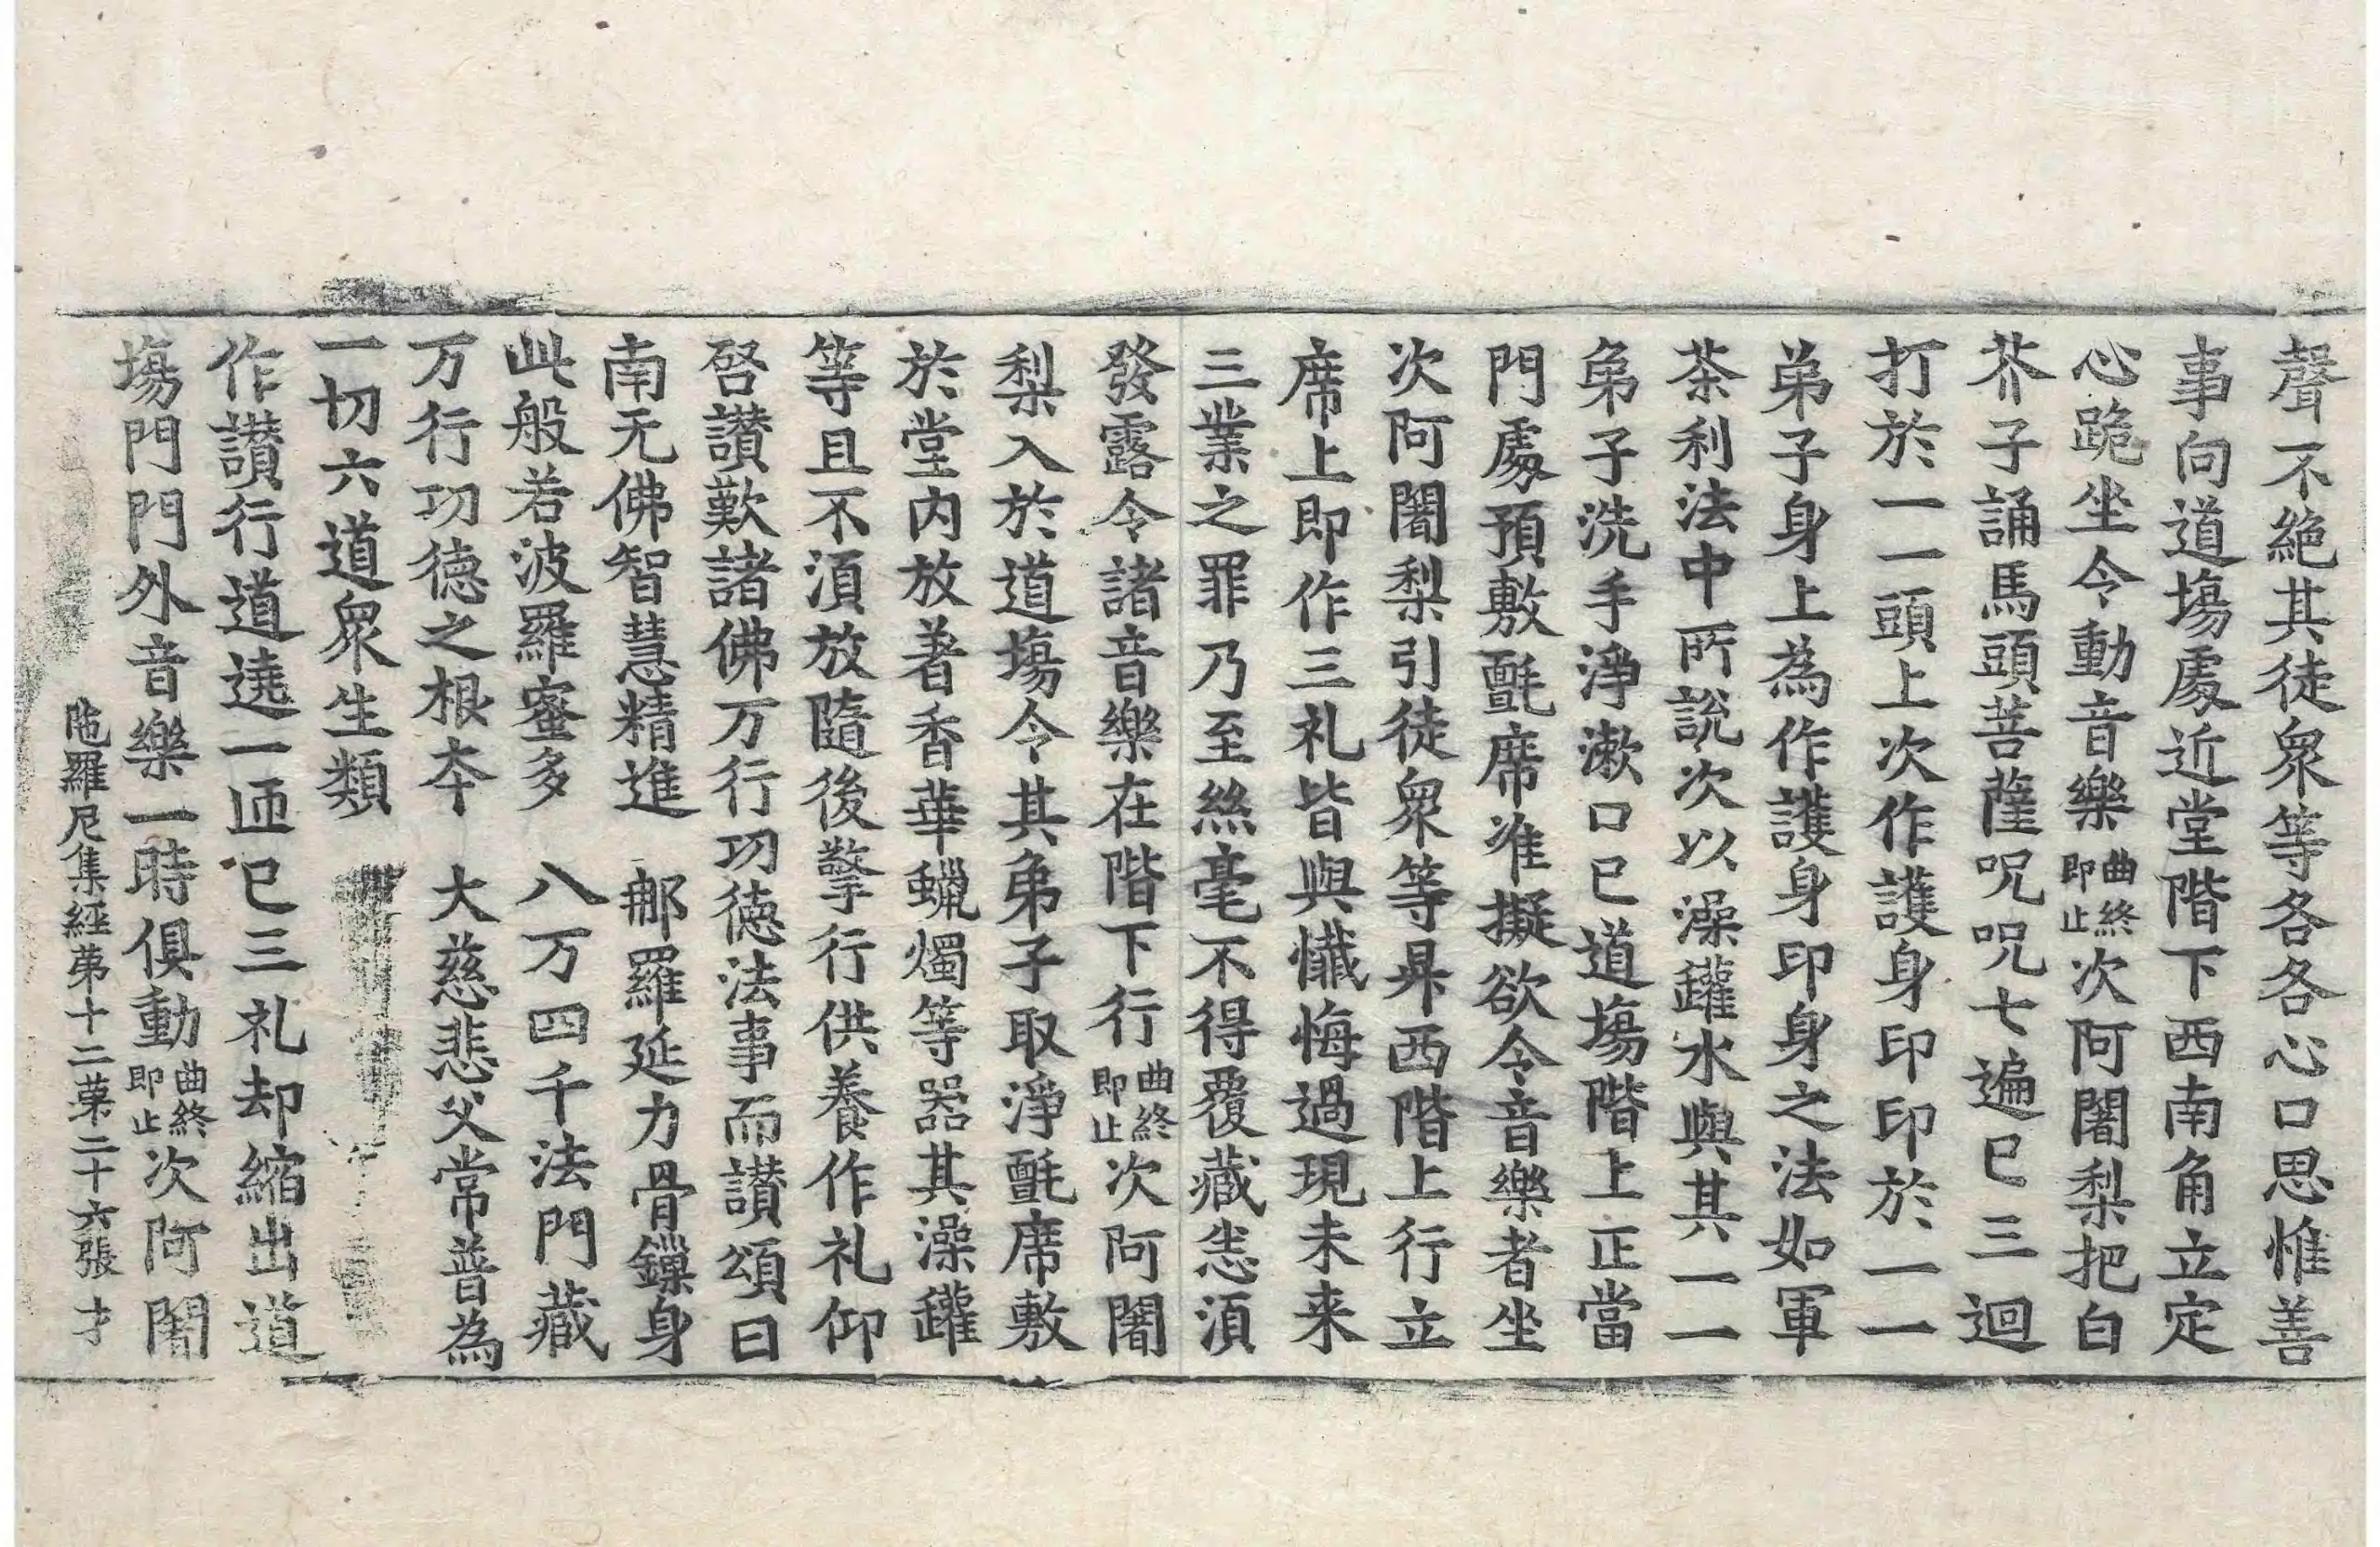 聲不絶其徒衆等各各心口思惟善
事向道塲處近堂階下西南角立定
心跪坐令動音樂曲終即止次阿闍梨把白
芥子誦馬頭菩薩呪呪七遍已三迴
打於一一頭上次作護身印印於一一
弟子身上為作護身印身之法如軍
茶利法中所說次以澡鑵水與其一一
弟子洗手淨漱口已道塲階上正當
門處預敷氈席准擬欲令音樂者坐
次阿闍梨引徒衆等昇西階上行立
席上即作三礼皆與懴悔過現未来
三業之罪乃至絲毫不得覆藏恙湏
發露令諸音樂在階下行曲終即止次阿闍
梨入於道塲令其弟子取淨氈席敷
於堂内放著香華蠟燭等器其澡鑵
等且不湏放隨後擎行供養作礼仰
啓讃歎諸佛万行功徳法事而讃頌曰
南无佛智慧精進 那羅延力骨鏁身
此般若波羅蜜多 八万四千法門藏
万行功徳之根夲 大慈悲父常普為
一切六道衆生類
作讃行道遶一帀已三礼却縮出道
塲門門外音樂一時俱動曲終即止次阿闍
陁羅尼集經苐十二苐二十六張 才